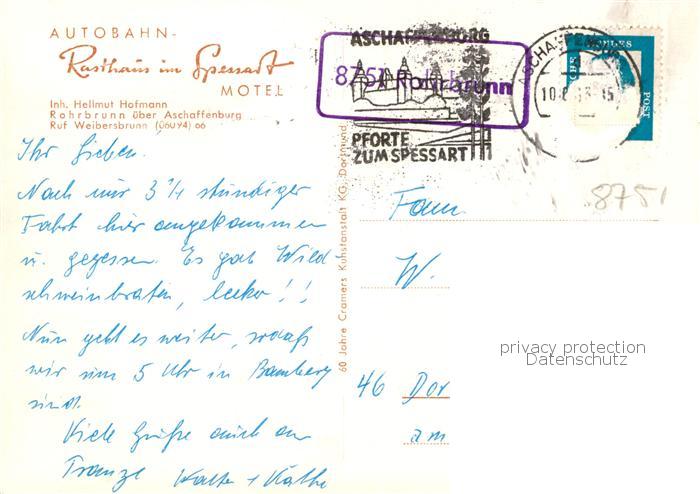 AUTOBAHN-
Rasthaus im Spessart
MOTEL
Inh. Hellmut Hofmann
Rohrbrunn über Aschaffenburg
Ruf Weibersbrunn (06094) 66
Ihr Lieben.
Nach nur 3 1/4 stündiger
Fahrt hier angekommen
u. gegessen. Es gab Wild-
schweinbraten, lecker!!
Nun geht es weiter, sodaß
wir um 5 Uhr in Bamberg
sind.
Viele Grüße auch an
Franze Walter + Käthe
60 Jahre Cramers Kunstanstalt KG, Dortmund
ASCHAFFENBURG
PFORTE
ZUM SPESSART
8751 Rohrbrunn
ASCHAFFENBURG
POST
8751
Fam.
W.
46 Dor
am
privacy protection
Datenschutz